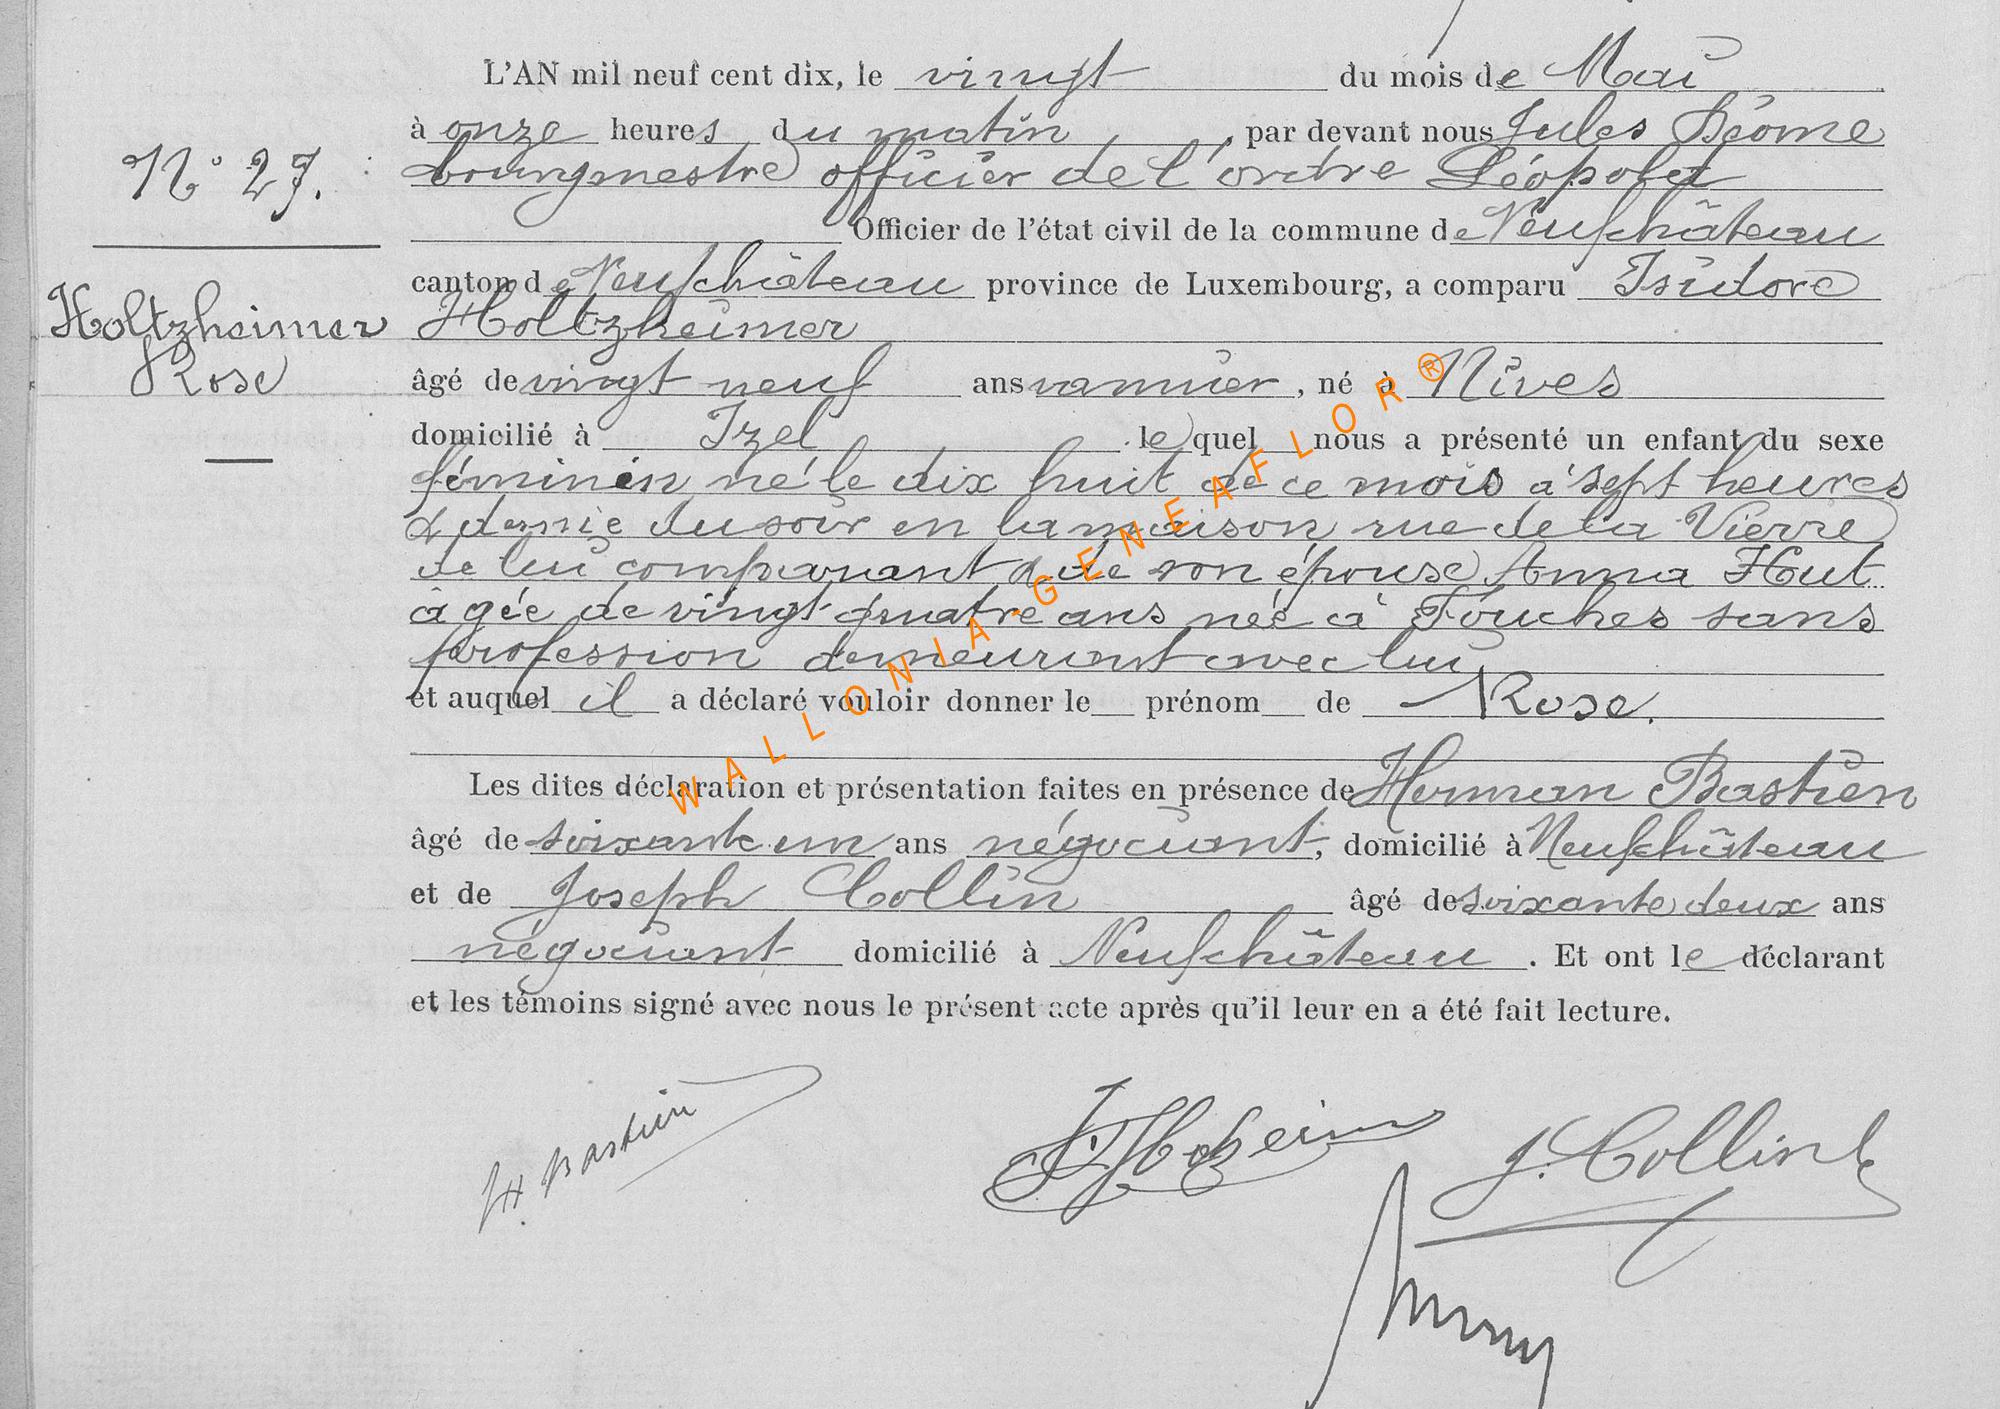 L'AN mil neuf cent dix, le vingt du mois de Mai
à onze heures du matin, par devant nous Jules
bourgmestre officier de l'ordre Léopold
Officier de l'état civil de la commune de Neufchâteau
N° 27.
canton de Neufchâteau province de Luxembourg, a comparu Isidore
Holtzheimer
Holtzheimer
Rose
âgé de vingt neuf ans vannier, né à Nives
domicilié à Izel lequel nous a présenté un enfant du sexe
féminin né le dix huit de ce mois à sept heures
& demie du soir en la maison rue de la Vierre
de lui comparant & de son épouse Anna Hut
agée de vingt quatre ans née à Fouches sans
profession demeurant avec lui
et auquel il a déclaré vouloir donner le prénom de Rose.
Les dites déclaration et présentation faites en présence de Herman Bastien
âgé de soixante un ans négociant, domicilié à Neufchâteau
et de Joseph Collin âgé de soixante deux ans
négociant domicilié à Neufchâteau. Et ont le déclarant
et les témoins signé avec nous le présent acte après qu'il leur en a été fait lecture.
H. Bastien
J. Collin
WALLONIA-GENEAFLOR®